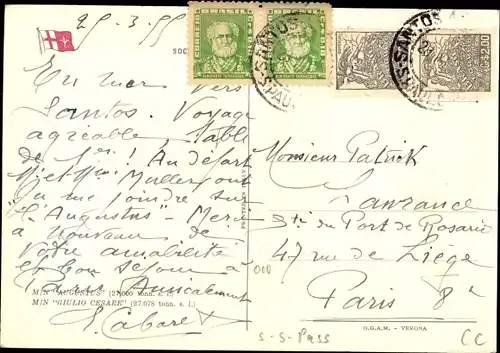 29-3-55
SOC
BRASIL CORREIO
SANTOS
SANTOS
2,00
En mer vers
Santos. Voyage
agréable, table
de 1er! Au départ
Mr et Mme Muller ont
pu me joindre sur
l'"Augustus" - Merci
à nouveau de
votre amabilité
et bon séjour à
Paris Amicalement
E. Cabaret
M/N "AUGUSTUS" (27.000 tonn. s. l.)
M/N "GIULIO CESARE" (27.078 tonn. s. l.)
Monsieur Patrick
Lavrance
Sté du Port de Rosario
47 rue de Liège
Paris 8e
O.G.A.M. - VERONA
S-S-Pass
CC